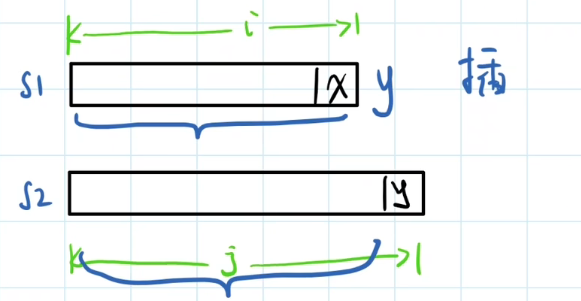 i
S1 x y 插
S2 y
j